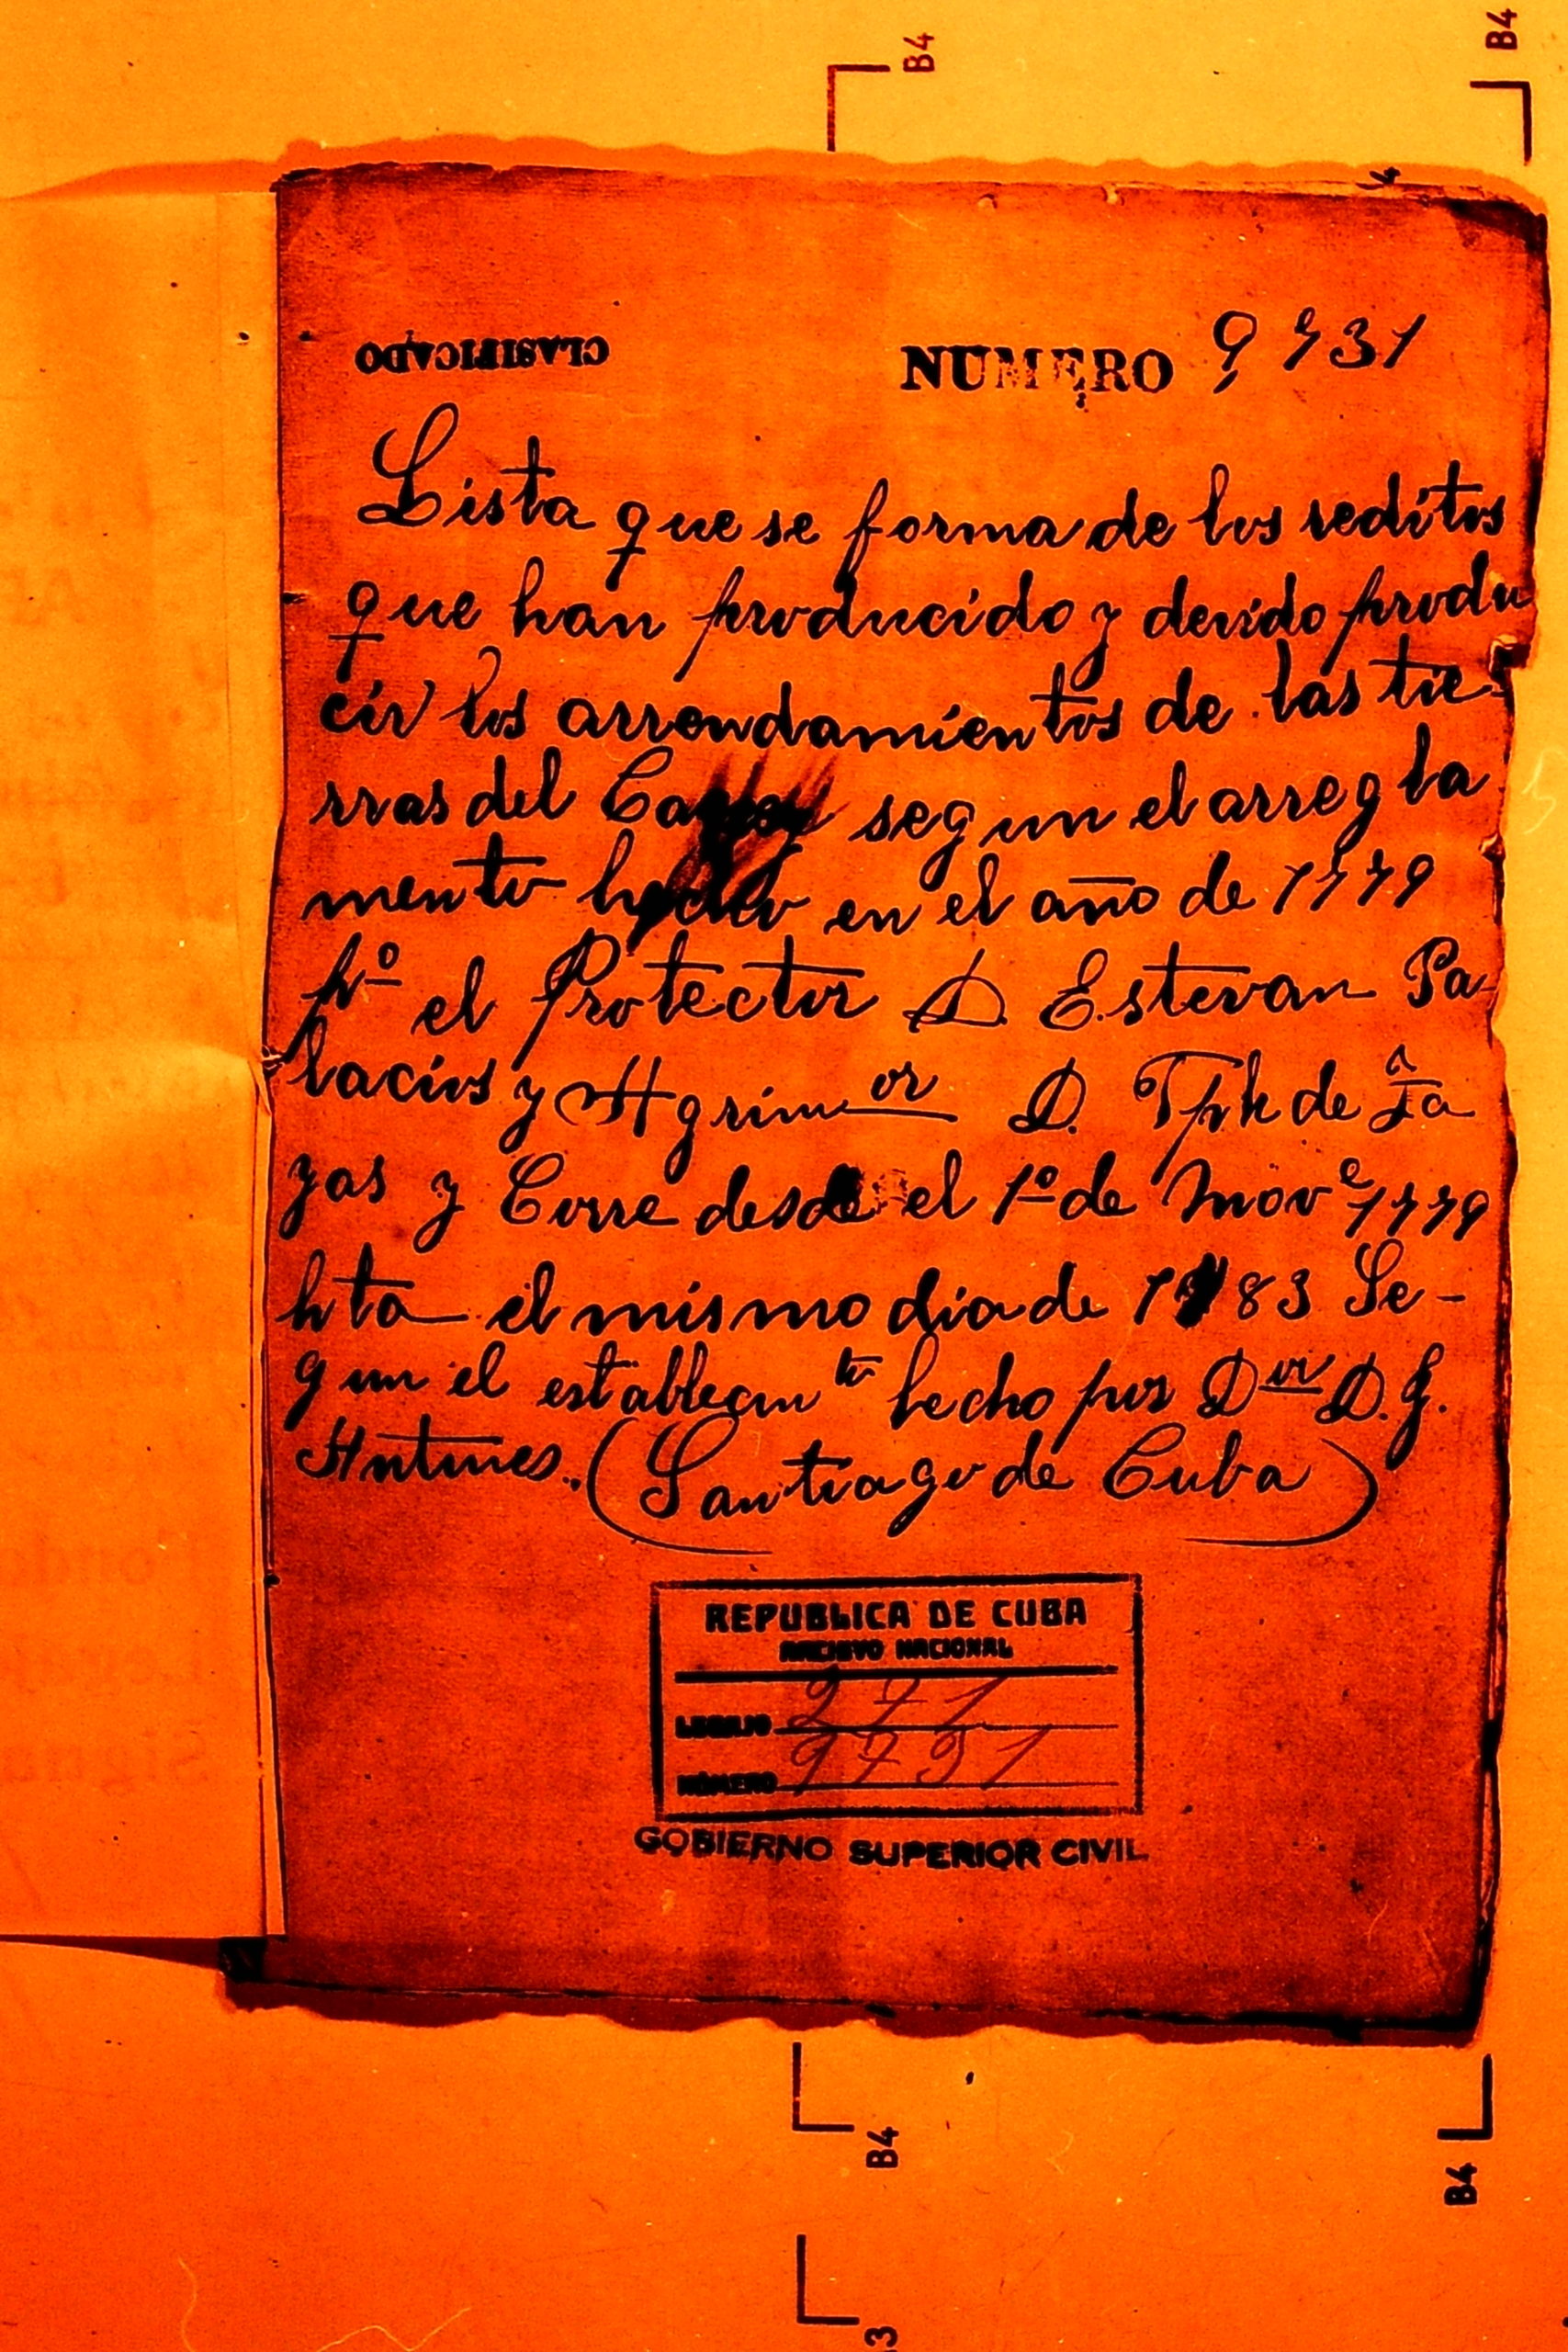 B4
B4
CLASIFICADO
NUMERO 9731
Lista que se forma de los reditos
que han producido y devido produ
cir los arrendamientos de las tie-
rras del segun el arregla
mento hecho en el año de 1779
pº el Protector D. Estevan Pa-
lacios y Agrimor D. de
yas y Corre desde el 1º de Nove 1779
hta el mismo dia de 1783 Se-
gun el establecimto hecho por Dor D. J.
Antunes. (Santiago de Cuba)
REPUBLICA DE CUBA
ARCHIVO NACIONAL
LEGAJO 271
NÚMERO 9731
GOBIERNO SUPERIOR CIVIL
B4
B4
3